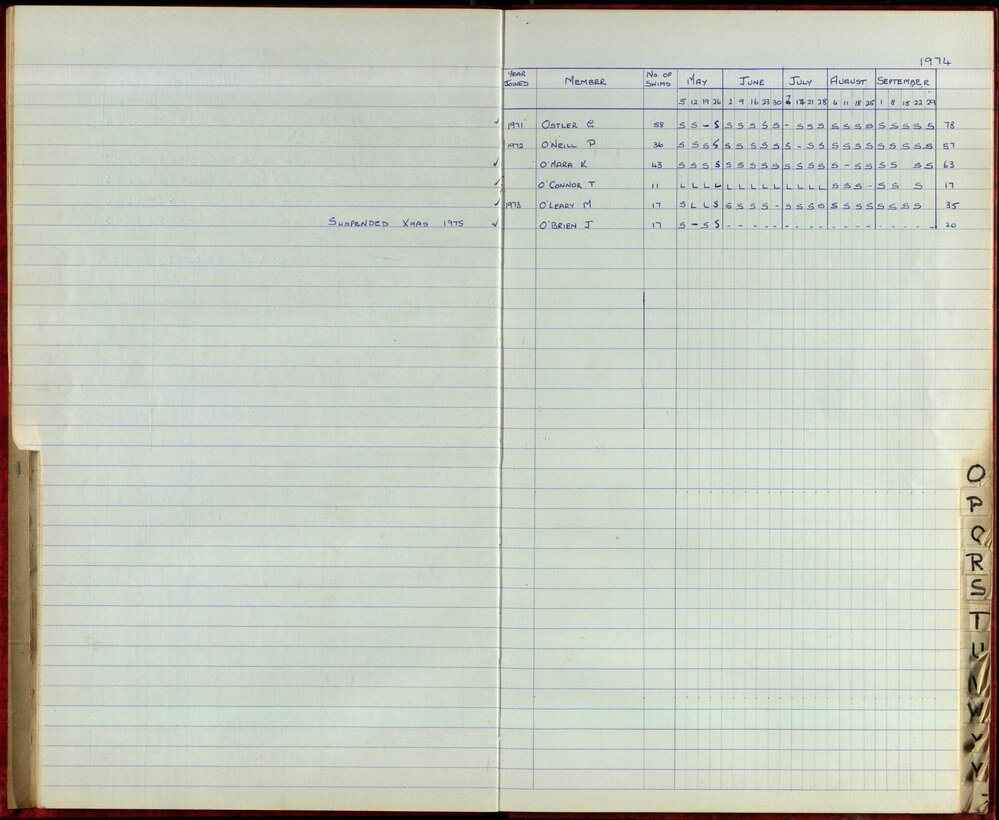 1974
YEAR JOINED MEMBER No. OF SWIMS MAY JUNE JULY AUGUST SEPTEMBER
5 12 19 26 2 9 16 23 30 7 14 21 28 4 11 18 25 1 8 15 22 29
✓ 1971 OSTLER G 58 S S - S S S S S S - S S S S S S S S S S S S 78
1972 O'NEILL P 36 S S S S S S S S S S - S S S S S S S S S S S 57
✓ O'MARA K 43 S S S S S S S S S S S S S S - S S S S S S 63
✓ O'CONNOR T 11 L L L L L L L L L L L L L S S S - S S S 17
✓ 1973 O'LEARY M 17 S L L S S S S S - S S S S S S S S S S S S 35
SUSPENDED XMAS 1975 ✓ O'BRIEN J 17 S - S S - - - - - - - - - - - - - - - - - - 20
O
P
Q
R
S
T
U
W
Y